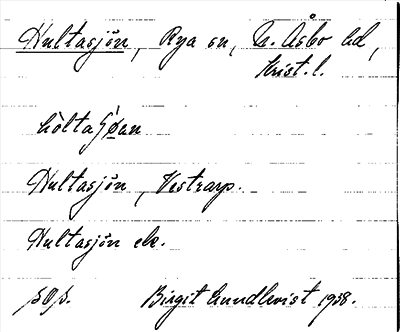 Hultasjön, Rya sn, N. Åsbo hd,
Krist. l.
Hultasjön, Vestrarp.
Hultasjön ek.
Birgit Lundkvist 1938.